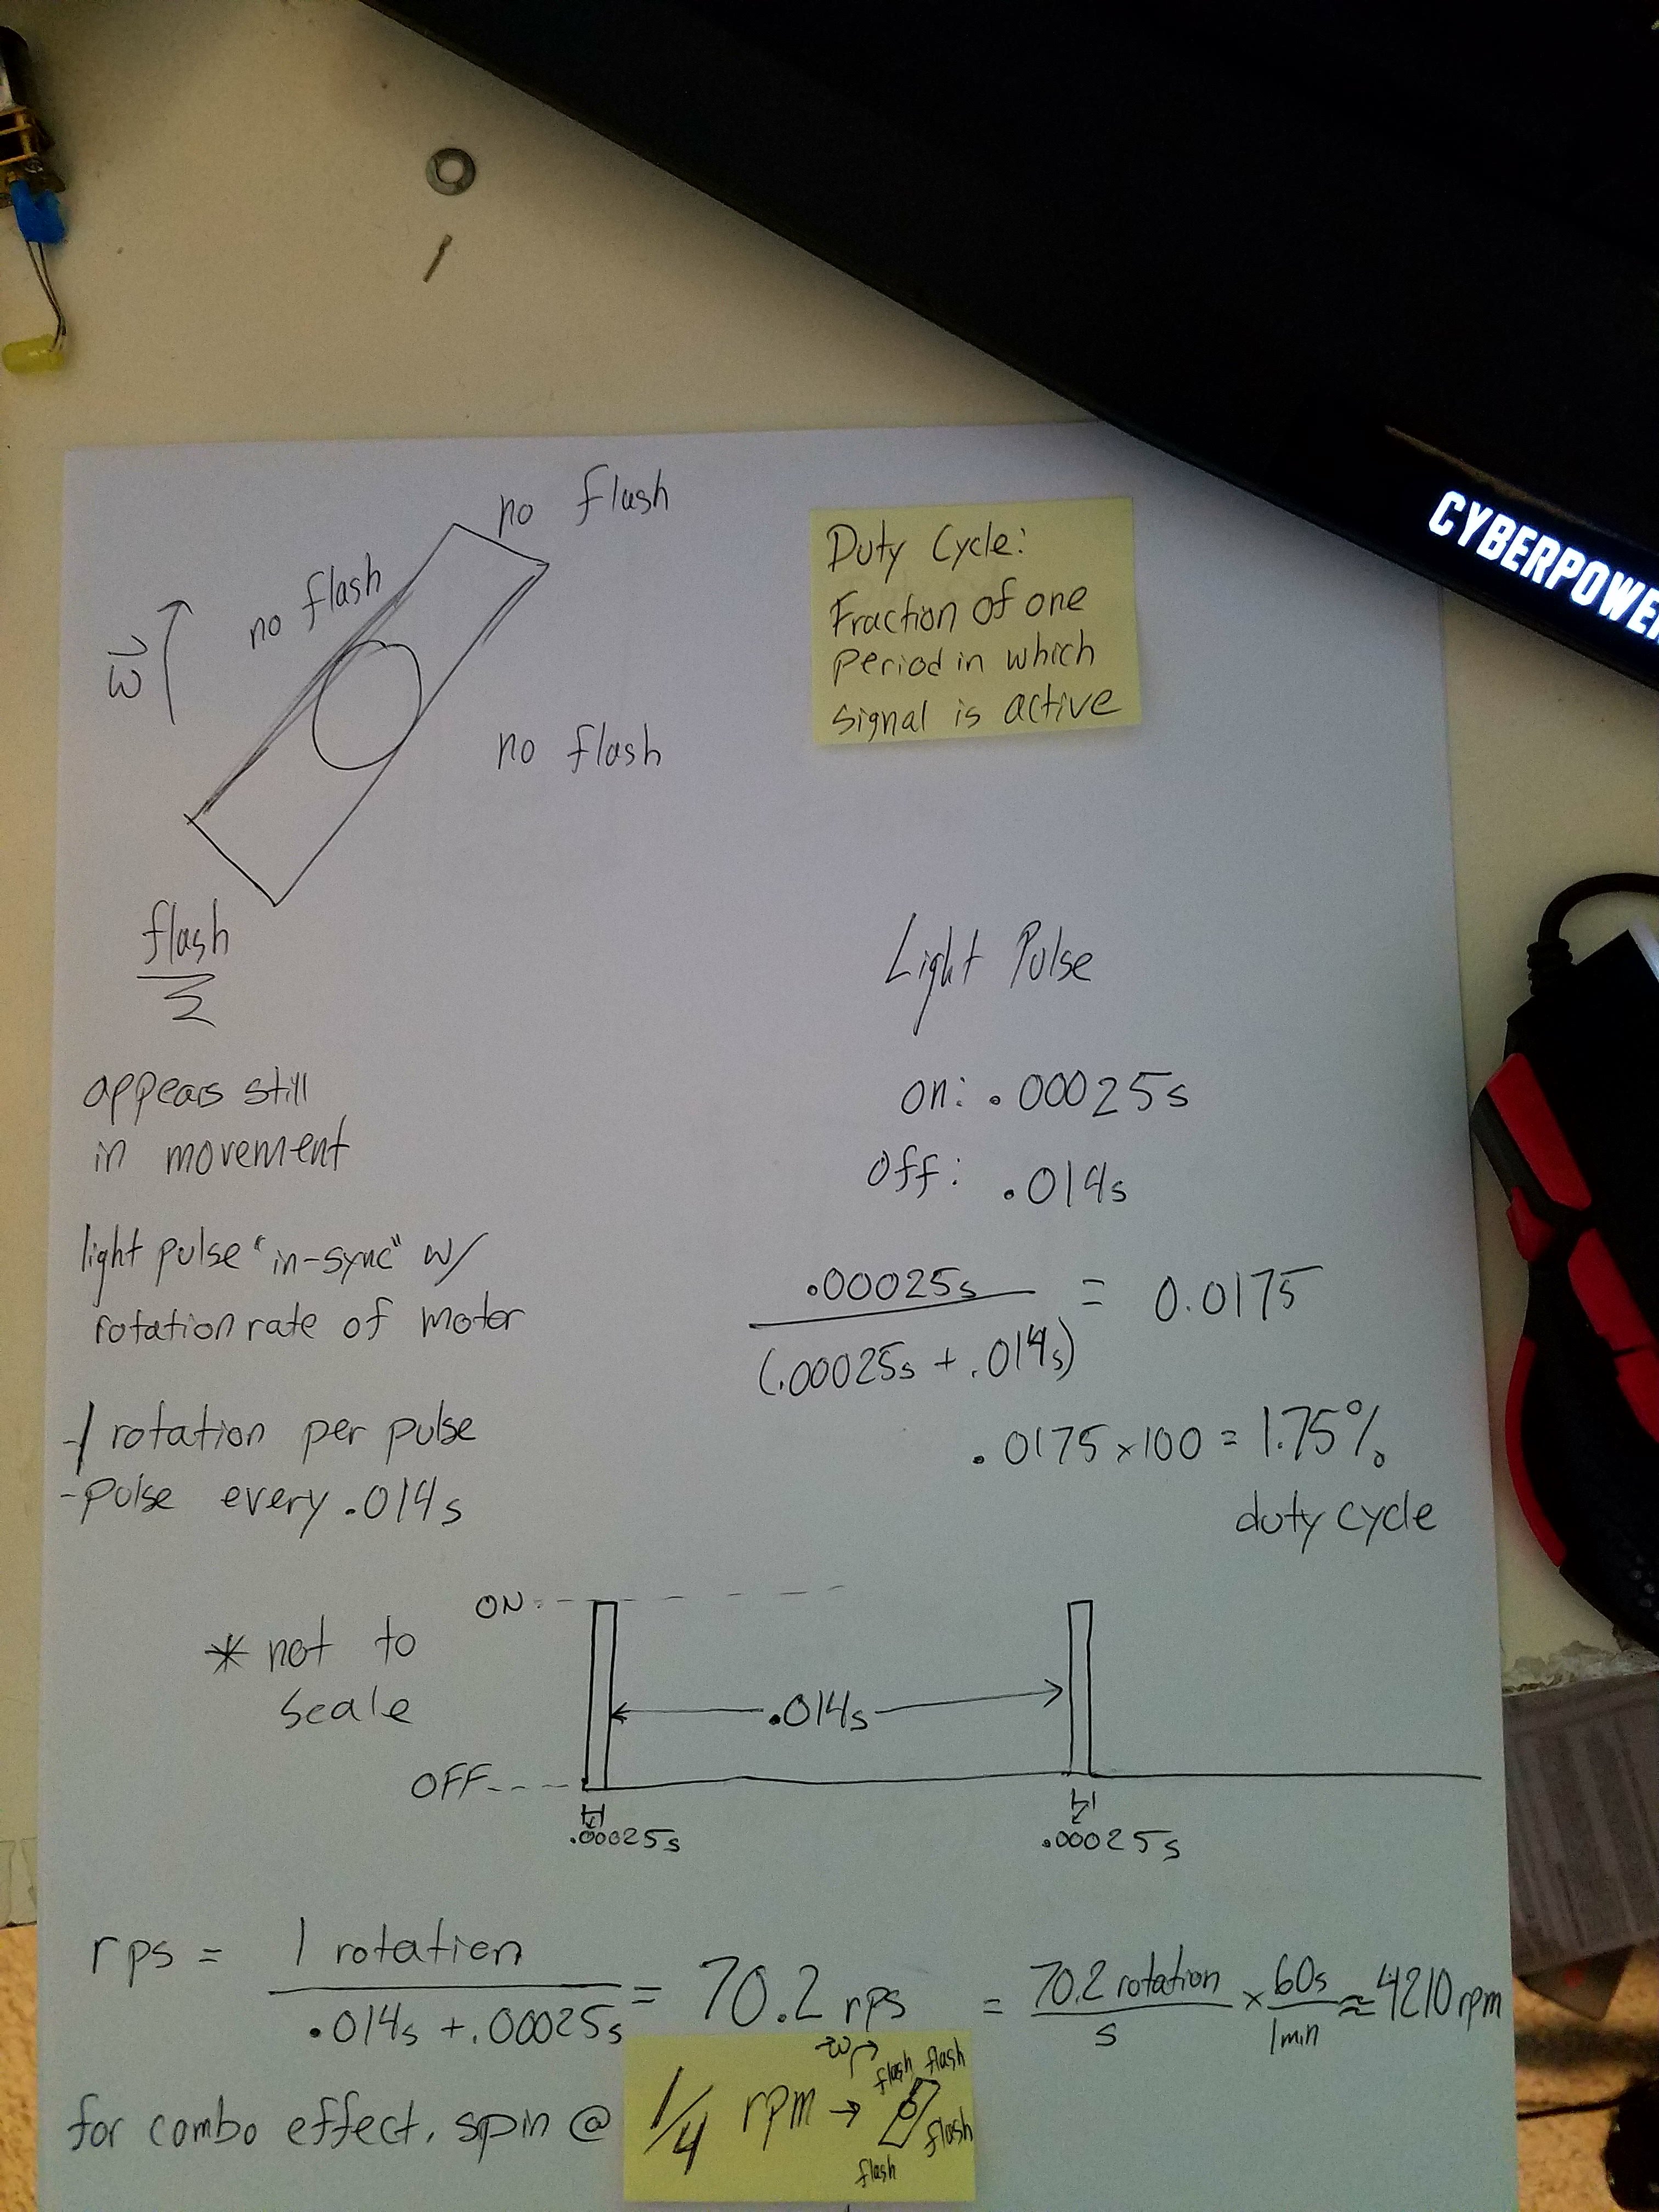 Duty Cycle:
Fraction of one
period in which
signal is active
ω
no flash
no flash
no flash
flash
appears still
in movement
light pulse "in-sync" w/
rotation rate of motor
-1 rotation per pulse
-Pulse every .014s
Light Pulse
on: .00025s
Off: .014s
.00025s
(.00025s + .014s)
= 0.0175
.0175 x 100 = 1.75%
duty cycle
* not to
scale
ON
OFF
.014s
.00025s
.00025s
rps = 1 rotation
.014s + .00025s
= 70.2 rps = 70.2 rotation
s
x 60s
1min
≈ 4210 rpm
for combo effect, spin @ 1/4 rpm →
ω
flash
flash
flash
flash
CYBERPOWE